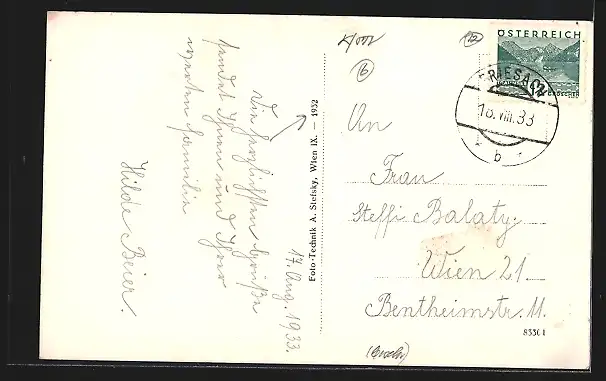 17. Aug. 1933.
Die herzlichsten Grüße
sendet Ihnen und Ihrer
werten Familie
Hilde Beier.
Foto-Technik A. Stefsky, Wien IX. — 1932
ÖSTERREICH
GROSCHEN
FRIESACH
18.VIII.33
b
An
Frau
Steffi Balaty.
Wien 21
Bentheimstr. 11.
83304